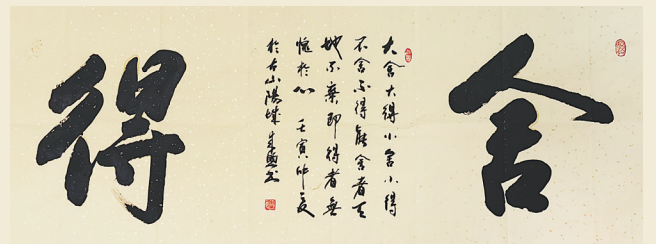 舍得
大舍大得小舍小得
不舍不得能舍者天
地不棄即得者無
愧於心 壬寅仲夏
於古山陽城